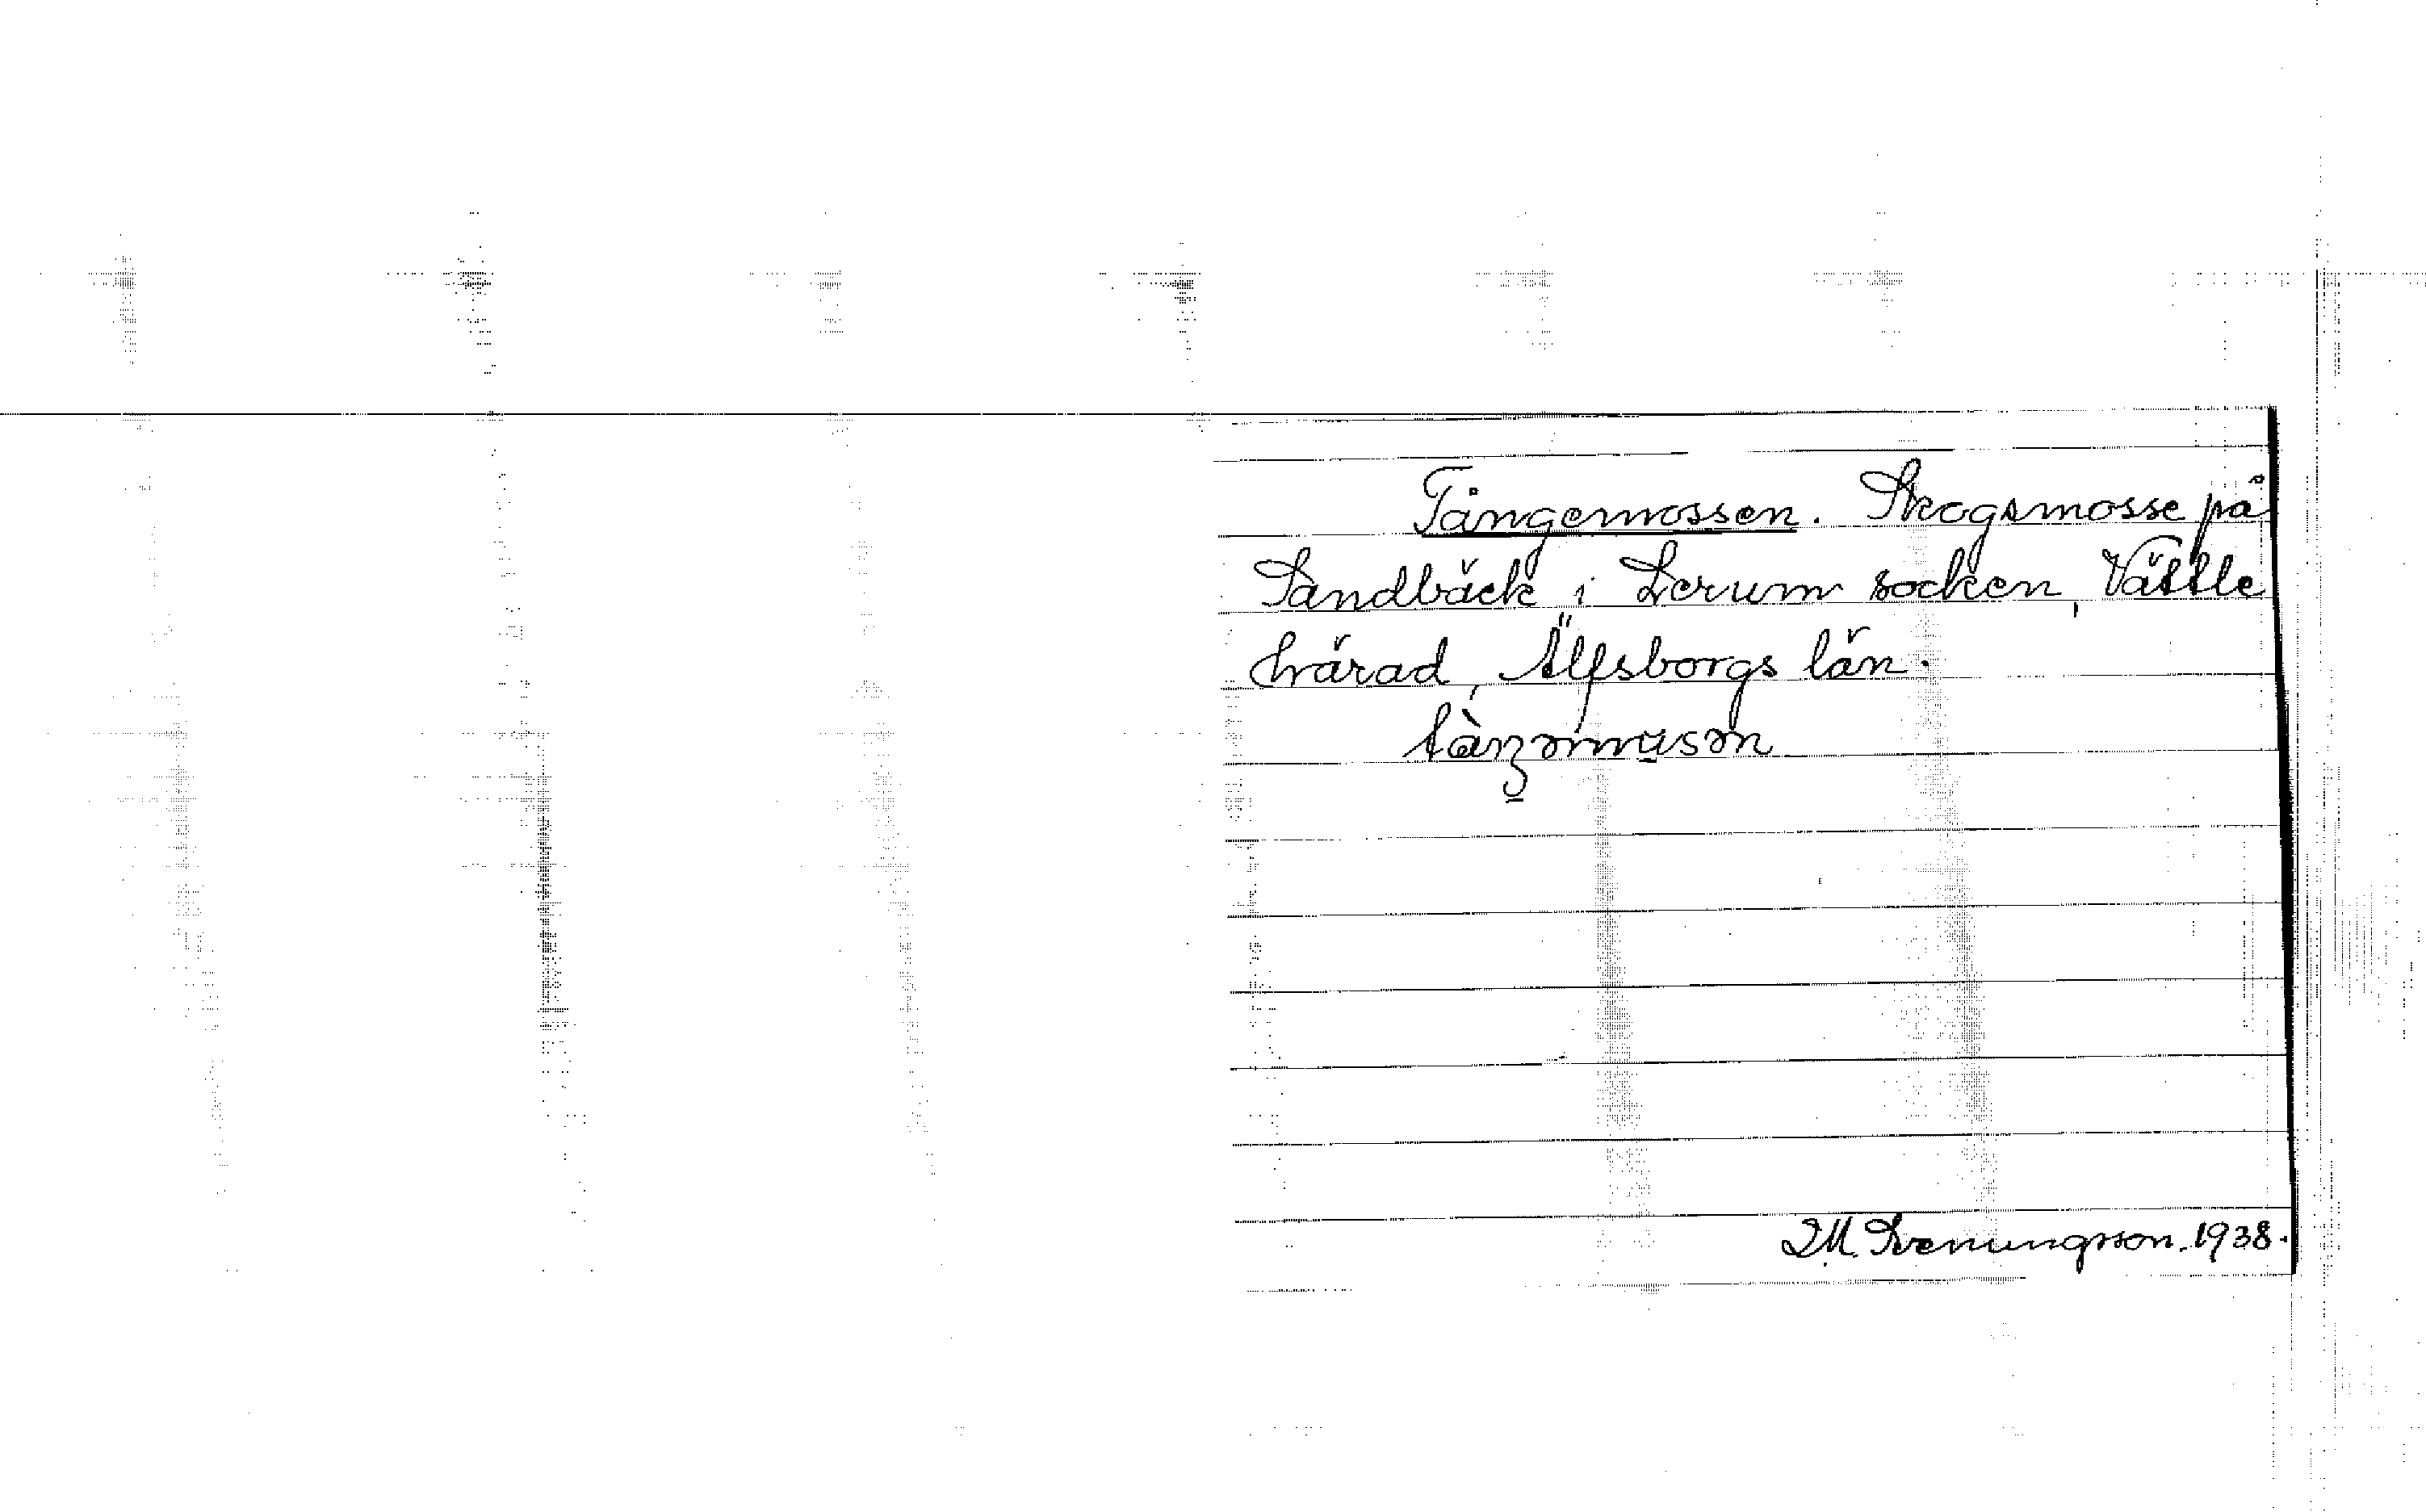 Tångemossen. Skogsmosse på
Sandbäck i Lerum socken, Vättle
härad, Älfsborgs län.
Svenungsson. 1938.